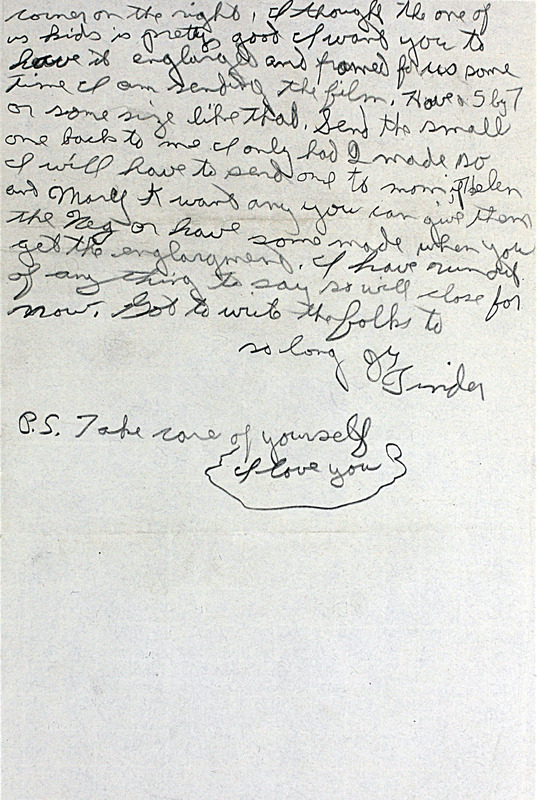 corner on the right, I thought the one of
us kids is pretty good I want you to
have it englarged and framed for us some
time I am sending the film. Have a 5 by 7
or some size like that. Send the small
one back to me I only had 2 made so
I will have to send one to mom if Helen
and Mary K want any you can give them
the Neg or have some made when you
get the englargment. I have run out
of any thing to say so will close for
now. Got to write the folks to
so long
P.S. Take care of yourself
I love you